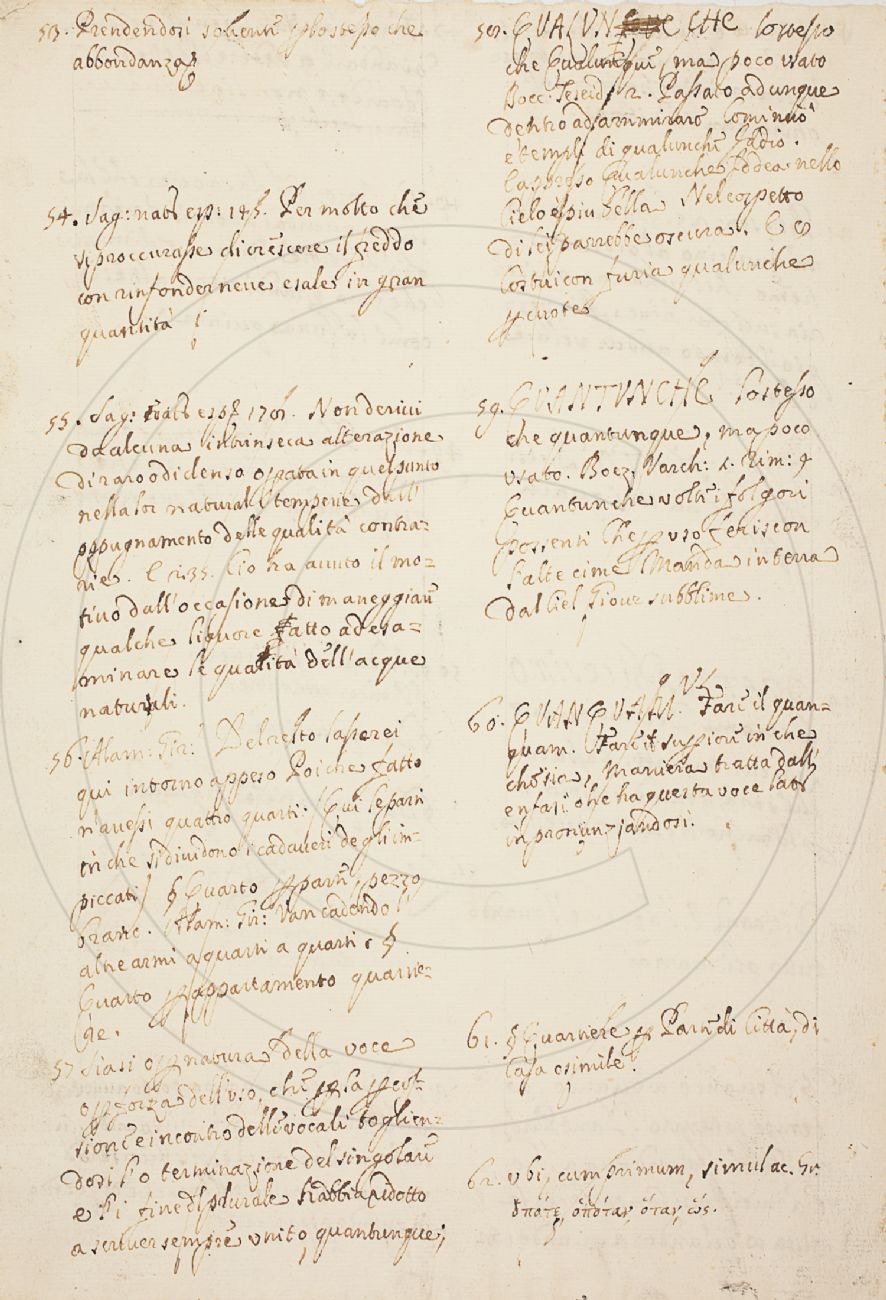 53. Prendendosi solienti per lostesso che
abbondanza
54. Sag: nat: esp: 145. Per molto che
si proccurasse di crescere il freddo
con rinfonder neve e sale in gran
quantità
55. Sag: nat: esp: 170. Non derivi
da alcuna intrinseca alterazione
di raro o di denso operata in quel punto
nella lor natural tempera dall'
oppugnamento delle qualità contra=
rie. E 235. Cio ha avuto il mo=
tivo dall'occasione di maneggiare
qualche liquore fatto ad esa=
minare le qualità dell'acque
naturali.
56. Alam: Gir: Del resto lascerei
qui intorno appeso Poiche fatto
n'avessi quattro quarti. Qui le parti
in che si dividono i cadaveri degli im=
piccati § Quarto per parte, pezzo
franc. Alam: Gir: Van cadendo
altre armi a quarti a quarti e §.
Quarto per appartamento quartie=
re.
57 Siasi o per natura della voce
o per forza dell'uso, che per la percus=
sione e incontro delle vocali toglien=
dosi l'o terminazione del singolare
e l'i fine di plurale s'abbia ridotto
a scriver sempre unito, quantunque;
58. QUALUNCHE lo stesso
che Qualunque, ma poco usato
Bocc: Teseid. 2. Passato adunque
dentro ad ammirare Cominciò
e templi di qualunche Iddio.
Qualunche Iddea nello
Cielo è piu bella Nel cospetto
Di lei parrebbe oscura. E
Costui con furia qualunche
percuote
59. QUANTUNCHE Lostesso
che quantunque, ma poco
usato. Boez. Varch: 1. Rim: 4
Quantunche volte i folgori
possenti Che per uso feriscon
l'alte cime Manda in terra
dal Ciel Giove subblime.
60. QUANQUAM. V.L. Fare il quan=
quam. Fare il in che
che sia, Maniera tratta dall'
enfasi che ha questa voce lat:
in pronunziandosi.
61. § Quartiere per Parte di Città, di
Casa e simile.
62. ubi, cum primum, simul ac. Gr.
ὁπότε, ὁπόταν, ὅταν, ὡς.